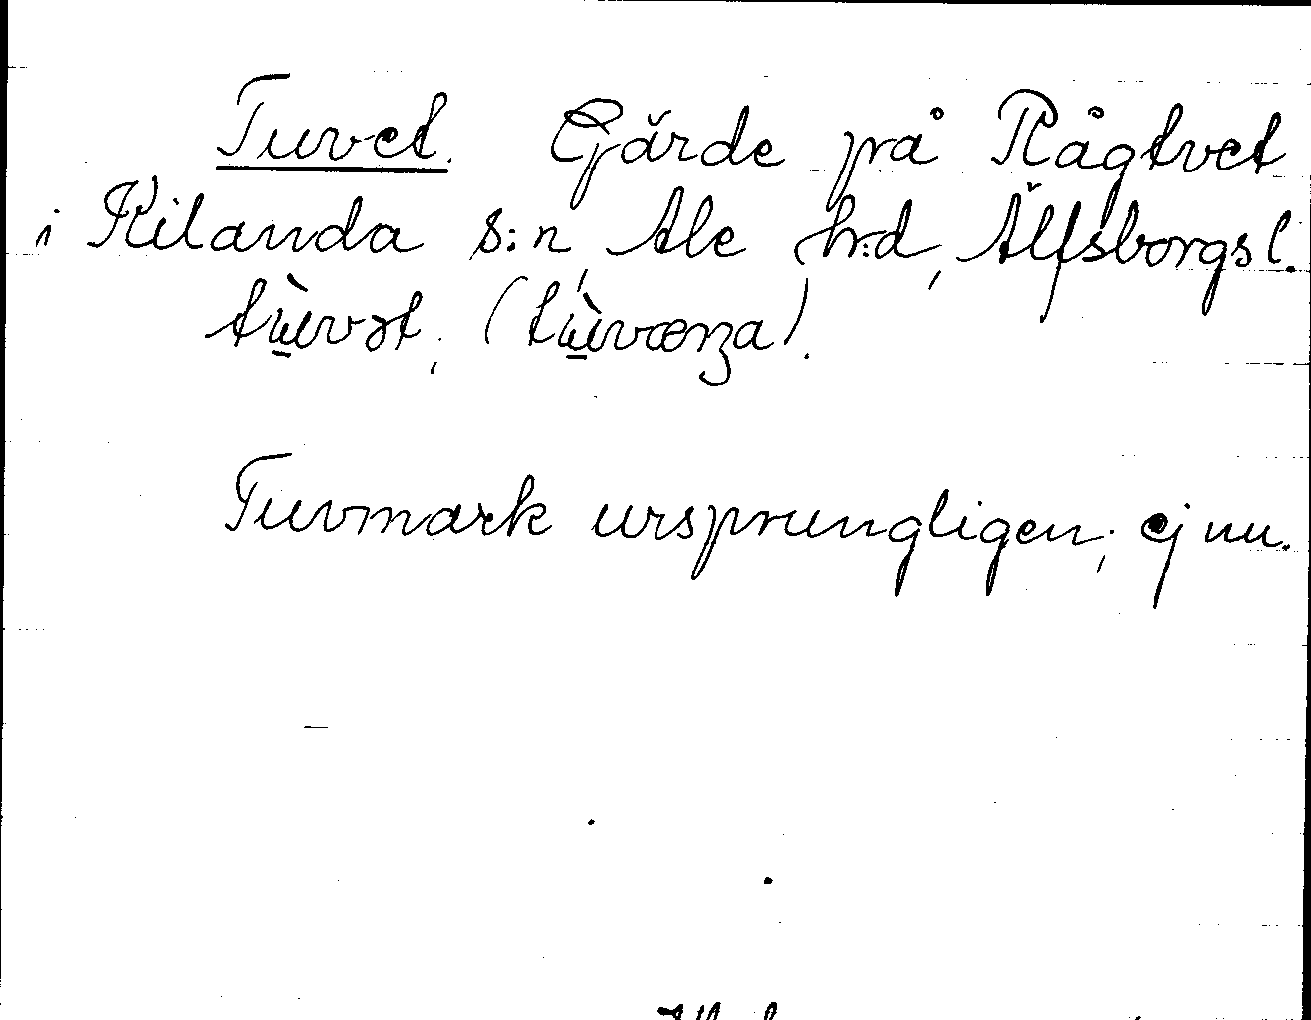 Tuvet. Gärde på Rågtvet
i Kilanda s:n, Ale h:d, Älfsborgs l.
tùvət; (tùvæɳa).
Tuvmark ursprungligen; ej nu.